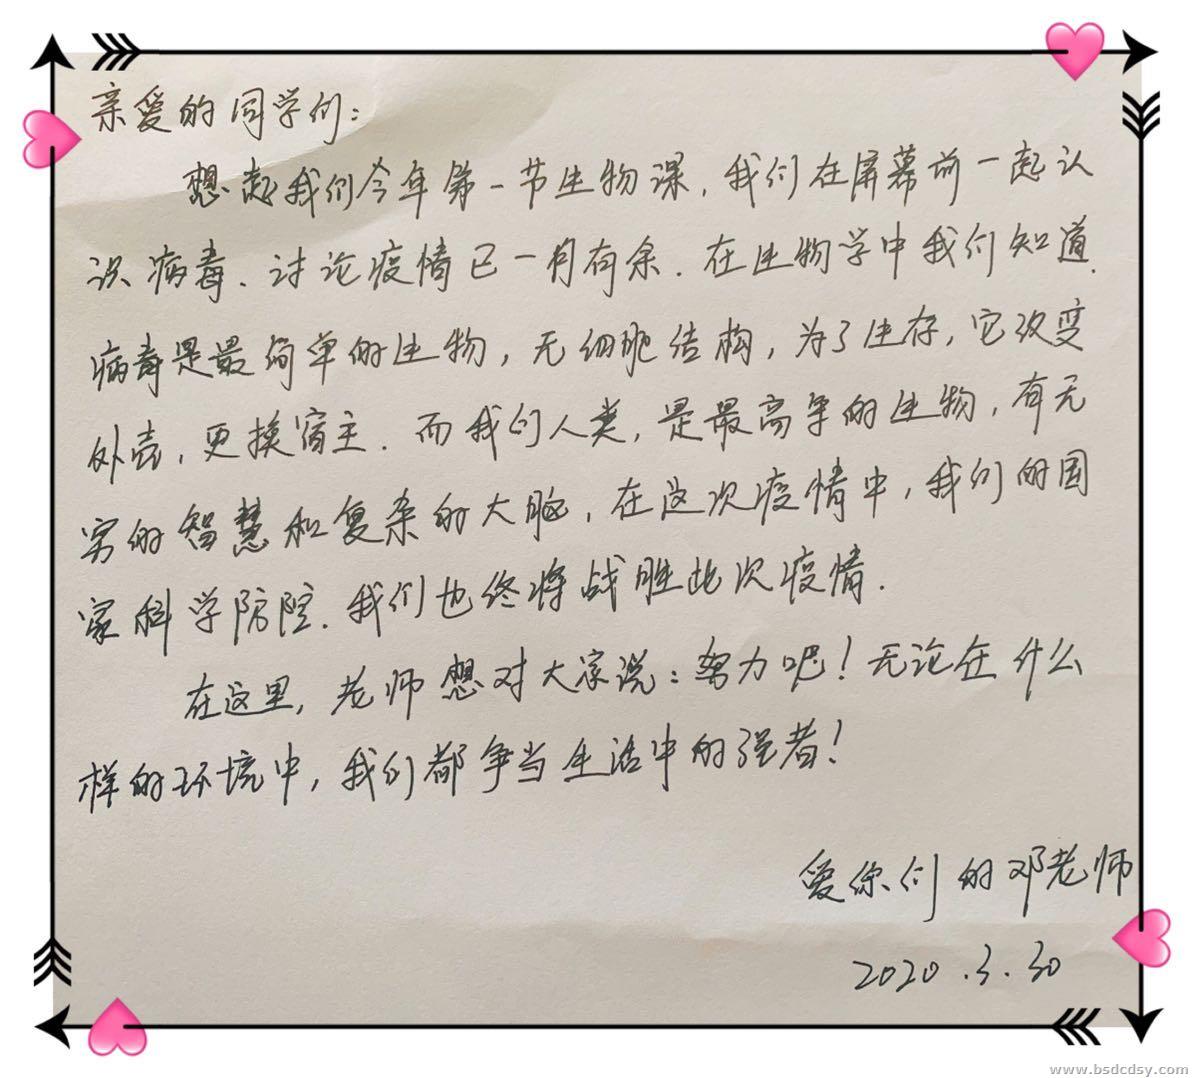 亲爱的同学们：
想起我们今年第一节生物课，我们在屏幕前一起认
识病毒、讨论疫情已一月有余．在生物学中我们知道．
病毒是最简单的生物，无细胞结构，为了生存，它改变
外壳，更换宿主．而我们人类，是最高等的生物，有无
穷的智慧和复杂的大脑，在这次疫情中，我们的国
家科学防控．我们也终将战胜此次疫情．
在这里，老师想对大家说：努力吧！无论在什么
样的环境中，我们都争当生活中的强者！
爱你们的邓老师
2020．3．30
www.bsdcdsy.com